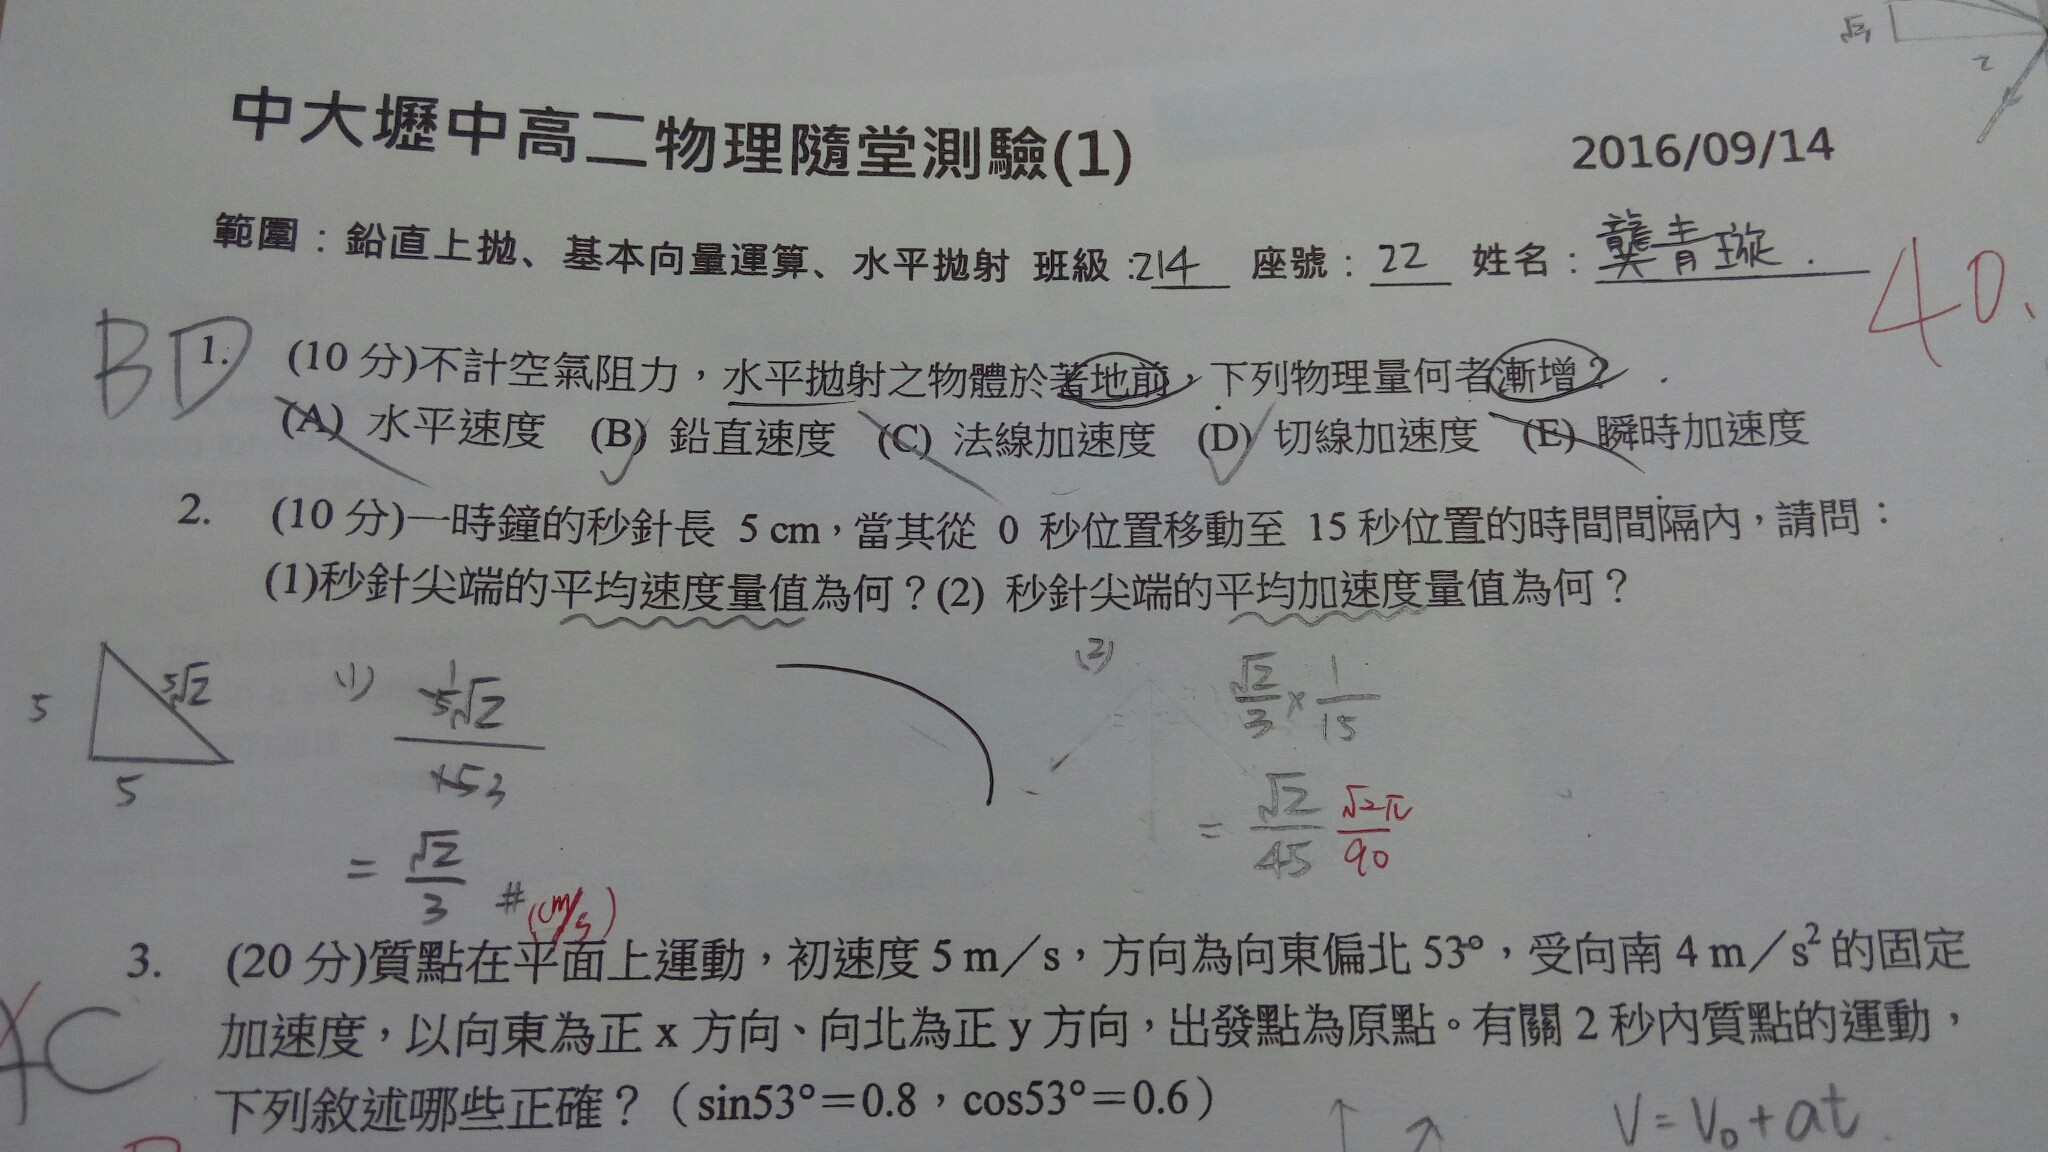 √5
2
中大壢中高二物理隨堂測驗(1)
2016/09/14
範圍：鉛直上拋、基本向量運算、水平拋射 班級:214 座號：22 姓名：龔青璇.
40.
BD
1. (10 分)不計空氣阻力，水平拋射之物體於著地前，下列物理量何者漸增？
(A) 水平速度 (B) 鉛直速度 (C) 法線加速度 (D) 切線加速度 (E) 瞬時加速度
2. (10 分)一時鐘的秒針長 5 cm，當其從 0 秒位置移動至 15 秒位置的時間間隔內，請問：
(1)秒針尖端的平均速度量值為何？(2) 秒針尖端的平均加速度量值為何？
5
5√2
5
(1)
5√2
15 3
= √2/3 # (cm/s)
(2)
√2/3 × 1/15
= √2/45 √2π/90
3. (20 分)質點在平面上運動，初速度 5 m／s，方向為向東偏北 53°，受向南 4 m／s² 的固定
加速度，以向東為正 x 方向、向北為正 y 方向，出發點為原點。有關 2 秒內質點的運動，
下列敘述哪些正確？（sin53°＝0.8，cos53°＝0.6）
C
V = V₀ + at